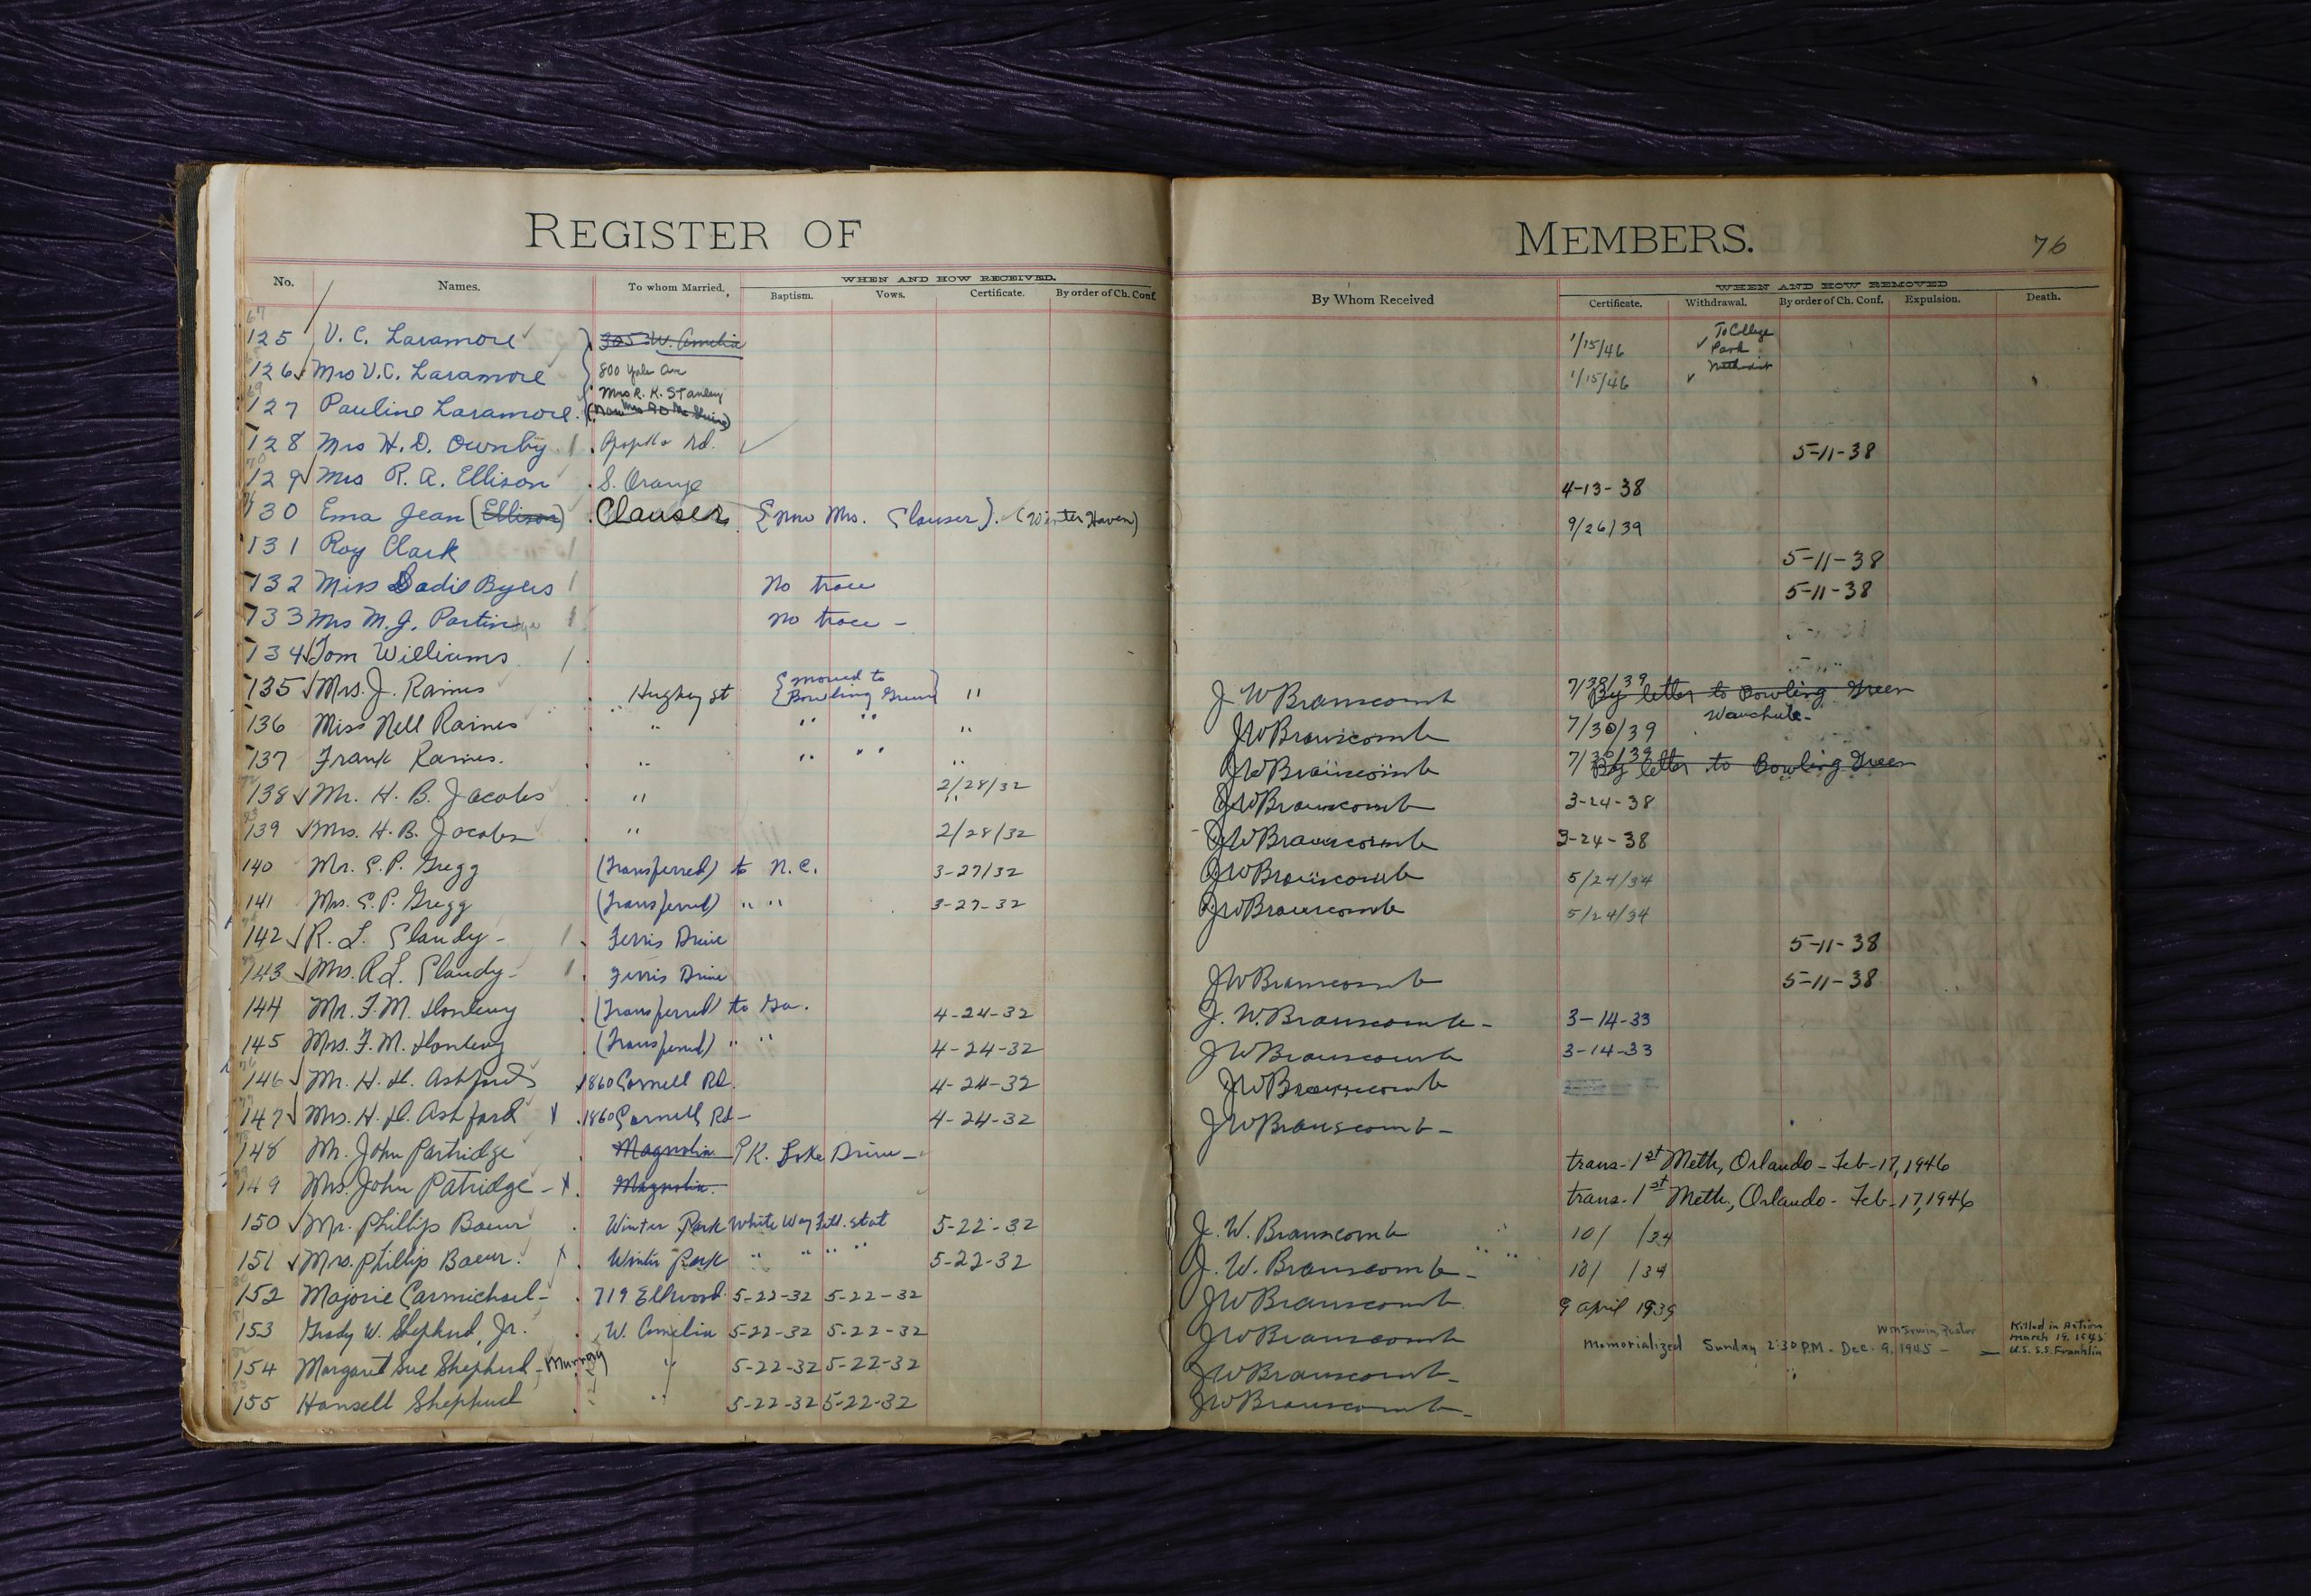 REGISTER OF MEMBERS. 76
No. Names. To whom Married. WHEN AND HOW RECEIVED. By Whom Received WHEN AND HOW REMOVED
Baptism. Vows. Certificate. By order of Ch. Conf. Certificate. Withdrawal. By order of Ch. Conf. Expulsion. Death.
125 V. C. Laramore 305 W. Amelia 1/15/46 ✓ To College Park Methodist
126 ✓ Mrs V.C. Laramore 800 Yale Ave 1/15/46 ✓
127 Pauline Laramore. Mrs R. K. Stanley
128 Mrs H. D. Ownby Apopka Rd. ✓ 5-11-38
129 ✓ Mrs R. A. Ellison S. Orange 4-13-38
130 Ema Jean (Ellison) Clauser {now Mrs. Clauser}. (Winter Haven) 9/26/39
131 Roy Clark 5-11-38
132 Miss Sadie Byers No trace 5-11-38
133 Mrs M. J. Partin No trace -
134 ✓ Tom Williams
135 ✓ Mrs. J. Raines Hughey St {moved to Bowling Green} " J W Branscomb 7/30/39 By letter to Bowling Green
136 Miss Nell Raines " " " " JW Branscomb 7/30/39 Wauchula-
137 Frank Raines. " " " " JW Branscomb 7/30/39 By letter to Bowling Green
138 ✓ Mr. H. B. Jacobs " 2/28/32 JW Branscomb 3-24-38
139 ✓ Mrs. H. B. Jacobs " 2/28/32 JW Branscomb 3-24-38
140 Mr. E. P. Gregg (Transferred) to N.C. 3-27/32 JW Branscomb 5/24/34
141 Mrs. E. P. Gregg (Transferred) " " 3-27-32 JW Branscomb 5/24/34
142 ✓ R. L. Clandy - Ferris Drive 5-11-38
143 ✓ Mrs. R L. Clandy - Ferris Drive JW Branscomb 5-11-38
144 Mr. F. M. (Transferred) to Ga. 4-24-32 J. W. Branscomb - 3-14-33
145 Mrs. F. M. (Transferred) " " 4-24-32 JW Branscomb 3-14-33
146 ✓ Mr. H. H. Ashford 1860 Cornell Rd. 4-24-32 JW Branscomb
147 ✓ Mrs. H. H. Ashford 1860 Cornell Rd - 4-24-32 JW Branscomb -
148 Mr. John Partridge Magnolia PK. Lake Drive - trans- 1st Meth, Orlando - Feb-17, 1946
149 Mrs. John Patridge - x Magnolia. trans- 1st Meth, Orlando - Feb-17, 1946
150 ✓ Mr. Phillip Baeur Winter Park White Way Fill. stat 5-22-32 J. W. Branscomb 10/ /34
151 ✓ Mrs. Phillip Baeur. x Winter Park " " " " 5-22-32 J. W. Branscomb - 10/ /34
152 Majorie Carmichael - 719 Ellwood 5-22-32 5-22-32 JW Branscomb 9 April 1939
153 Grady W. Shepherd, Jr. W. Amelia 5-22-32 5-22-32 JW Branscomb Memorialized Sunday 2:30 P.M. - Dec. 9, 1945 - Wm Irwin, Pastor Killed in Action March 19, 1945 U.S.S. Franklin
154 Margaret Sue Shepherd - Murray " 5-22-32 5-22-32 JW Branscomb -
155 Hansell Shepherd " 5-22-32 5-22-32 JW Branscomb -